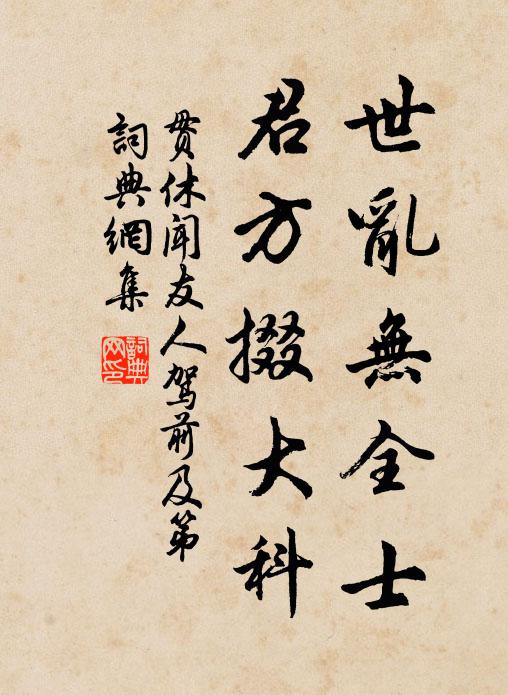 世亂無全士
君方掇大科
貫休聞友人駕前及第
詞典網集
詞典
网印